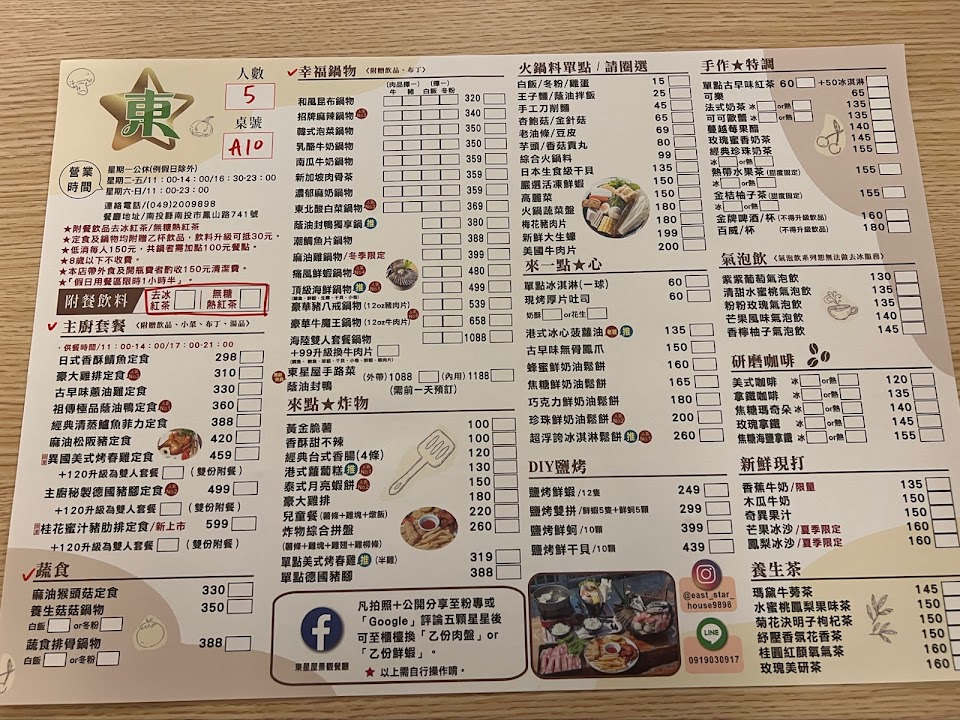 東
人數
5
桌號
A10
營業時間
星期一公休(例假日除外)
星期二-五/11:00-14:00/16:30-23:00
星期六.日/11:00-23:00
連絡電話/(049)2009898
餐廳地址/南投縣南投市鳳山路741號
★附餐飲品去冰紅茶/無糖熱紅茶
★定食及鍋物均附贈乙杯飲品,飲料升級可抵30元。
★低消每人150元,共鍋者需加點100元餐點。
★8歲以下不收費。
★本店帶外食及開瓶費者酌收150元清潔費。
★「假日用餐區限時1小時半」。
附餐飲料 去冰紅茶 無糖熱紅茶
主廚套餐 〈附贈飲品、小菜、布丁、湯品〉
·供餐時間/11:00-14:00/17:00-21:00
日式香酥鯖魚定食 298
豪大雞排定食 310
古早味蔥油雞定食 330
祖傳極品蔭油鴨定食 360
經典清蒸鱸魚菲力定食 388
麻油松阪豬定食 420
異國美式烤春雞定食 459
+120升級為雙人套餐 (雙份附餐)
主廚秘製德國豬腳定食 499
+120升級為雙人套餐 (雙份附餐)
桂花蜜汁豬肋排定食/新上市 599
+120升級為雙人套餐 (雙份附餐)
蔬食
麻油猴頭菇定食 330
養生菇菇鍋物 350
白飯 or冬粉
蔬食排骨鍋物 388
白飯 or冬粉
幸福鍋物 〈附贈飲品、布丁〉
(肉品擇一) (擇一)
牛 豬 白飯 冬粉
和風昆布鍋物 320
招牌麻辣鍋物 340
韓式泡菜鍋物 350
乳酪牛奶鍋物 359
南瓜牛奶鍋物 359
新加坡肉骨茶 359
濃郁麻奶鍋物 359
東北酸白菜鍋物 369
蔭油封鴨獨享鍋 推 380
潮鯛魚片鍋物 380
麻油雞鍋物/冬季限定 400
痛風鮮蝦鍋物 490
頂級海鮮鍋物 推 499
豪華豬八戒鍋物 (12oz豬肉片) 539
豪華牛魔王鍋物 (12oz牛肉片) 658
海陸雙人套餐鍋物 1088
+99升級換牛肉片
東星屋手路菜 (外帶)1088 (內用)1188
蔭油封鴨 (需前一天預訂)
來點★炸物
黃金脆薯 100
香酥甜不辣 100
經典台式香腸(4條) 120
港式蘿蔔糕 推 150
泰式月亮蝦餅 150
豪大雞排 180
兒童餐(薯條+雞塊+燉飯) 220
炸物綜合拼盤 260
(薯條+雞塊+雞翅+雞柳條)
單點美式烤春雞 推 (半雞) 319
單點德國豬腳 388
東星屋景觀餐廳
凡拍照+公開分享至粉專或
「Google」評論五顆星星後
可至櫃檯換「乙份肉盤」or
「乙份鮮蝦」。
★以上需自行操作唷。
火鍋料單點 / 請圈選
白飯/冬粉/雞蛋 15
王子麵/蔭油拌飯 25
手工刀削麵 45
杏鮑菇/金針菇 65
老油條/豆皮 69
芋頭/香菇貢丸 80
綜合火鍋料 99
日本生食級干貝 135
嚴選活凍鮮蝦 150
高麗菜 150
火鍋蔬菜盤 180
梅花豬肉片 180
新鮮大生蠔 199
美國牛肉片 200
來一點★心
單點冰淇淋(一球) 60
現烤厚片吐司 60
奶酥 or花生
港式冰心菠蘿油 推 135
古早味無骨鳳爪 150
蜂蜜鮮奶油鬆餅 160
焦糖鮮奶油鬆餅 165
巧克力鮮奶油鬆餅 180
珍珠鮮奶油鬆餅 200
超浮誇冰淇淋鬆餅 推 260
DIY鹽烤
鹽烤鮮蝦/12隻 249
鹽烤雙拼/鮮蝦5隻+鮮蚵5顆 299
鹽烤鮮蚵/10顆 399
鹽烤鮮干貝/10顆 439
@east_star_
house9898
LINE
0919030917
手作★特調
單點古早味紅茶 60 +50冰淇淋
可樂 65
法式奶茶 冰 or熱 135
可可歐蕾 冰 or熱 135
蔓越莓果醋 140
玫瑰蜜香奶茶 145
經典珍珠奶茶
冰 or熱
熱帶水果茶(甜度固定) 155
冰 or熱
金桔柚子茶(甜度固定) 155
冰 or熱
金牌啤酒/杯 (不得升級飲品) 160
百威/杯 (不得升級飲品) 180
氣泡飲 〈氣泡飲系列恕無法做去冰服務〉
紫紫葡萄氣泡飲 130
清甜水蜜桃氣泡飲 135
粉粉玫瑰氣泡飲 135
芒果風味氣泡飲 135
香檸柚子氣泡飲 145
研磨咖啡
美式咖啡 冰 or熱 120
拿鐵咖啡 冰 or熱 135
焦糖瑪奇朵 冰 or熱 140
玫瑰拿鐵 冰 or熱 145
焦糖海鹽拿鐵 冰 or熱 155
新鮮現打
香蕉牛奶/限量 135
木瓜牛奶 150
奇異果汁 150
芒果冰沙/夏季限定 160
鳳梨冰沙/夏季限定 160
養生茶
瑪黛牛蒡茶 145
水蜜桃鳳梨果味茶 150
菊花決明子枸杞茶 150
紓壓香氛花香茶 150
桂圓紅顏氧氣茶 160
玫瑰美研茶 160